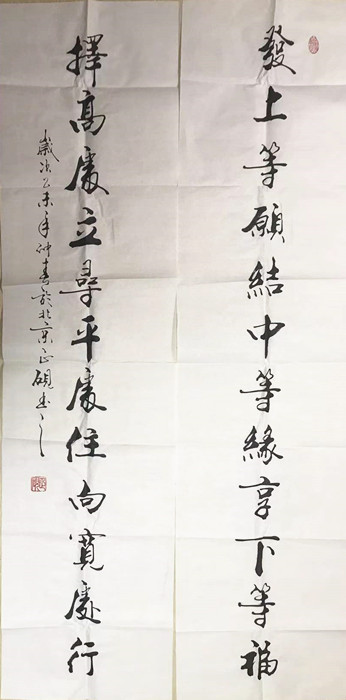 發上等願結中等緣享下等福
擇高處立尋平處住向寬處行
歲次乙未年仲春於北京正硯書之